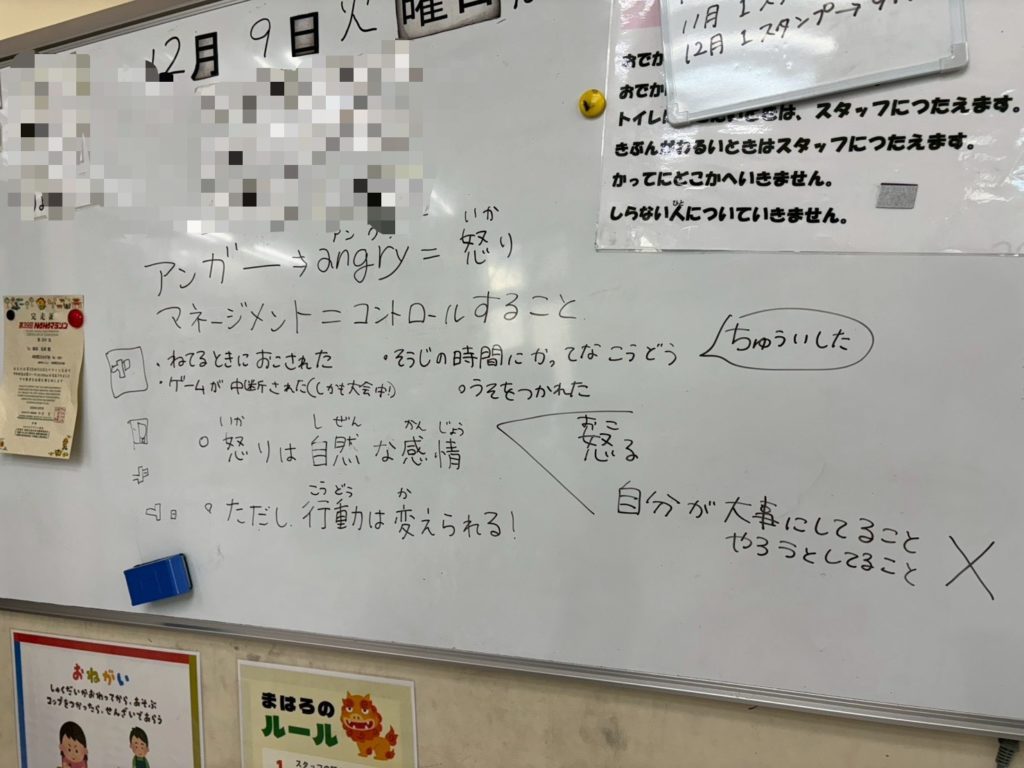 12月 9日 火 曜日
11月 1
12月 1スタンプ→
おでか
おでか
トイレに は、スタッフにつたえます。
きぶんがわるいときはスタッフにつたえます。
かってにどこかへいきません。
しらない人についていきません。
ひと
は
いか
アンガー→angry=怒り
マネージメント=コントロールすること
・ねてるときにおこされた
・そうじの時間にかってなこうどう
ちゅういした
・ゲームが中断された(しかも大会中!)
○うそをつかれた
いか しぜん かんじょう
○怒りは自然な感情
おこ
怒る
こうどう か
○ただし、行動は変えられる!
自分が大事にしてること
やろうとしてること
×
完走証
NAHAマラソン
おねがい
しゅくだいがおわってから、あそぶ
コップをつかったら、せんざいであらう
まはろの
ルール
1